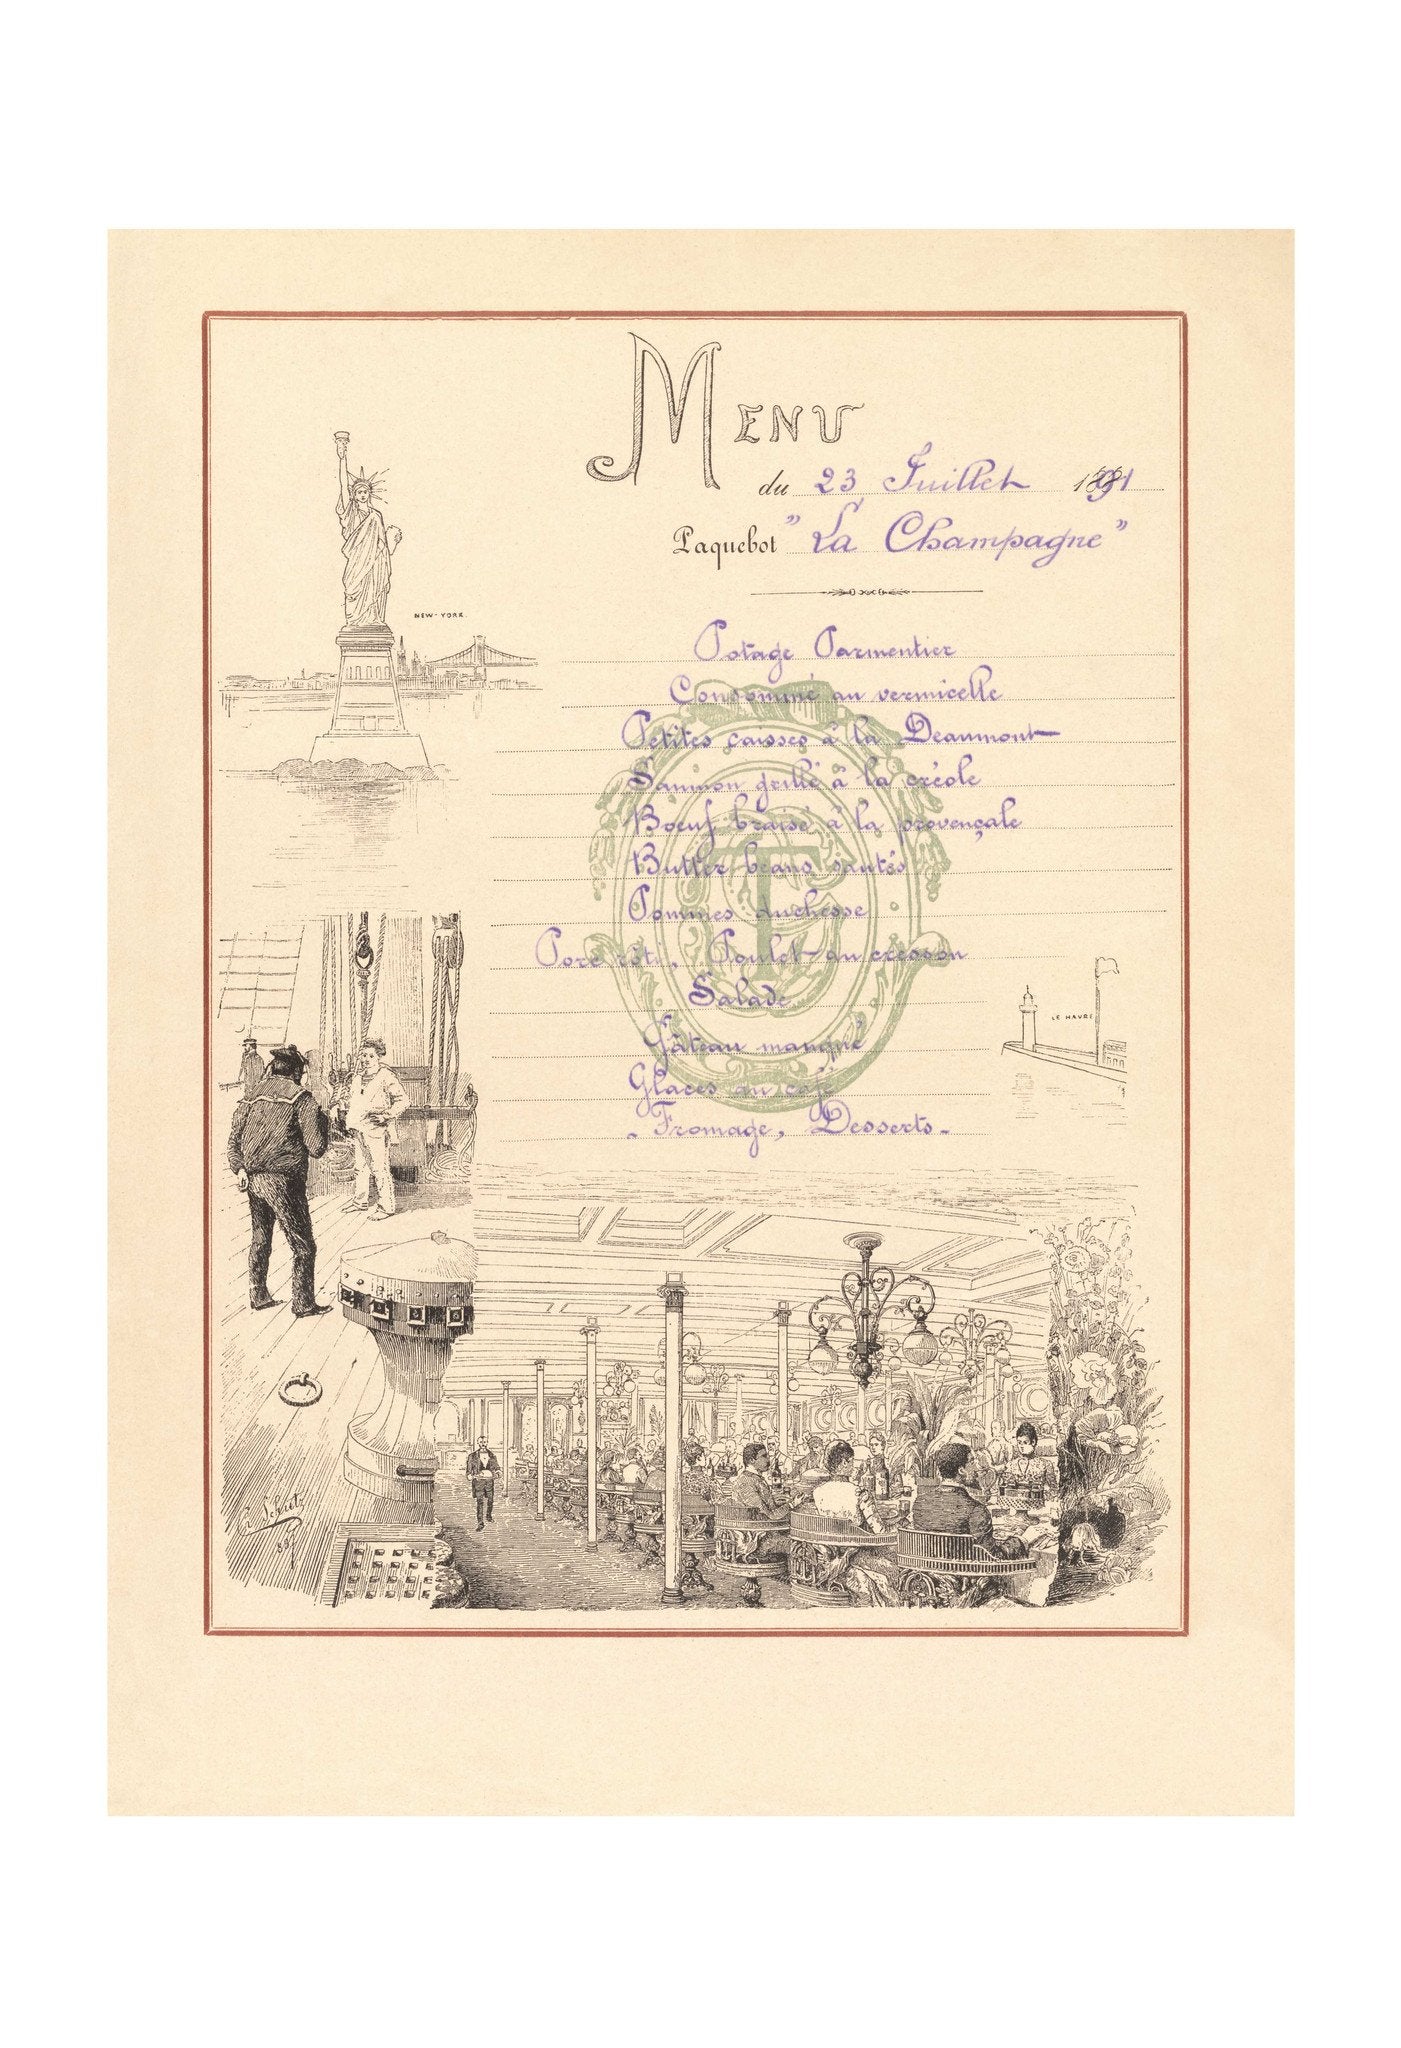 MENU
du 23 Juillet 1891
Paquebot "La Champagne"
NEW-YORK.
Potage Parmentier
Consommé au vermicelle
Petites caisses à la Beaumont
Saumon grillé à la créole
Boeuf braisé à la provençale
Butter beans sautés
Pommes duchesse
Porc rôti, Poulet au cresson
Salade
LE HAVRE
Gâteau manqué
Glaces au café
- Fromage, Desserts -